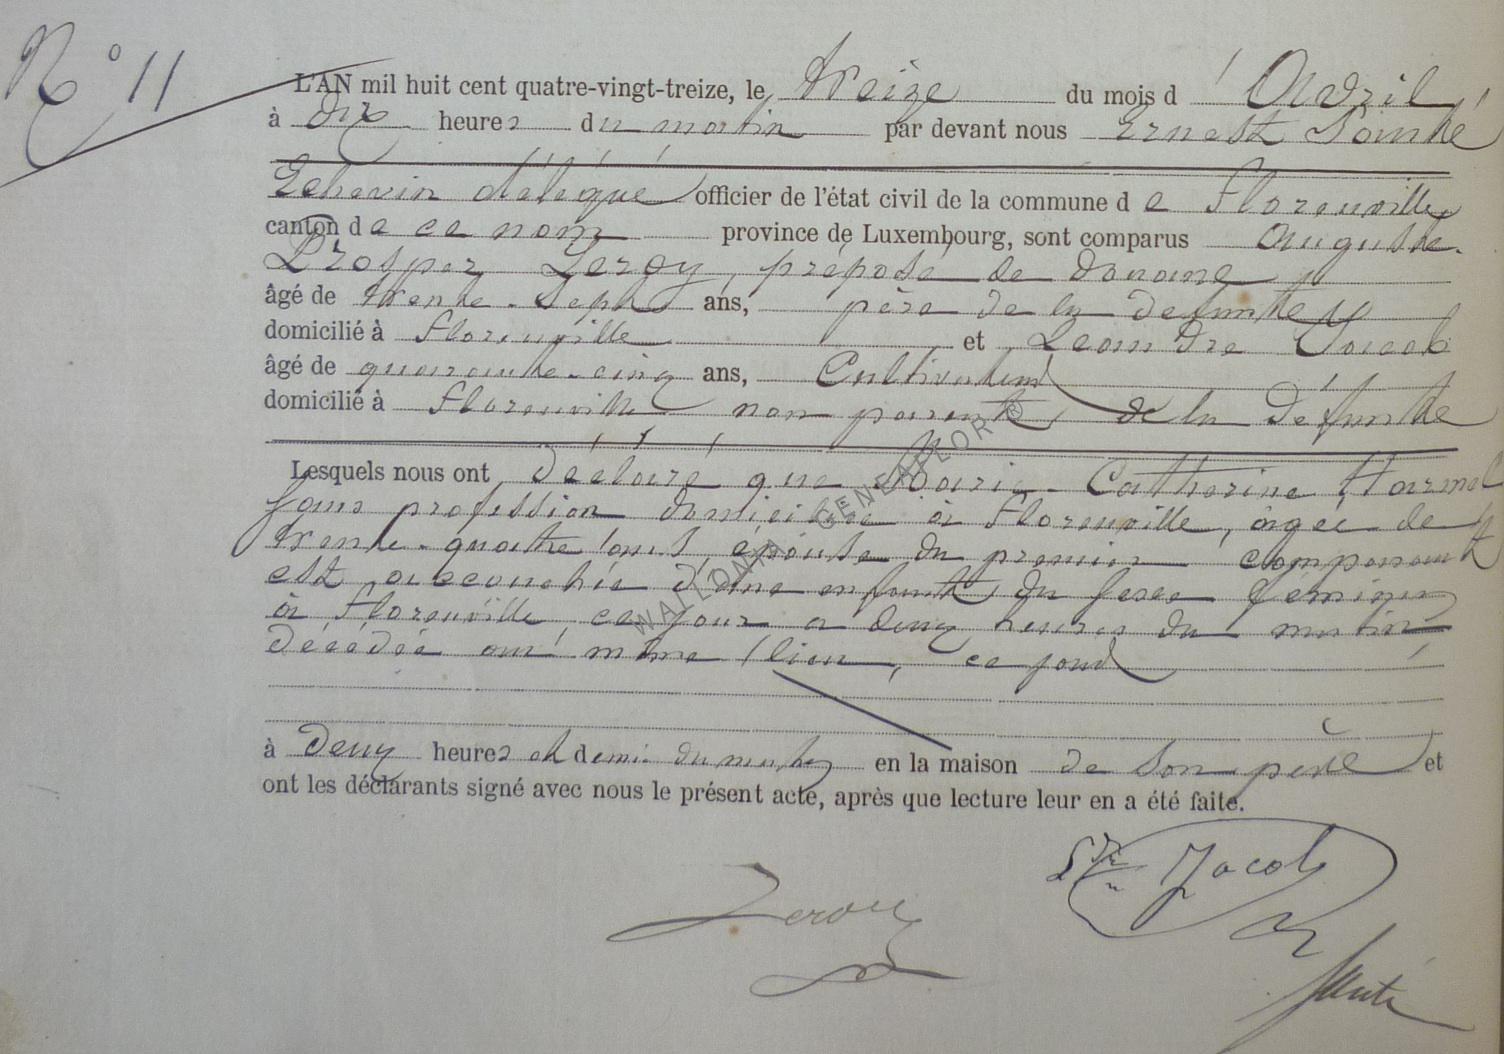 N° 11
L'AN mil huit cent quatre-vingt-treize, le treize du mois d'Avril
à dix heures du matin par devant nous Ernest Santé
Echevin délégué officier de l'état civil de la commune de Florenville,
canton de ce nom province de Luxembourg, sont comparus Auguste
Prosper Leroy, préposé de douane
âgé de trente-sept ans, père de la défunte
domicilié à Florenville et Leandre Jacob
âgé de quarante-cinq ans, Cultivateur
domicilié à Florenville non parent de la défunte
Lesquels nous ont déclaré que Marie-Catherine Harmel
sans profession domiciliée à Florenville, âgée de
trente-quatre ans, épouse du premier comparant
est accouchée d'une enfant du sexe féminin
à Florenville, ce jour a deux heures du matin
décédée au même lieu, ce jour
à deux heures et demi du matin en la maison de son père et
ont les déclarants signé avec nous le présent acte, après que lecture leur en a été faite.
Jacob
Leroy
Santé
WALLONIA GENEAFLOR ®